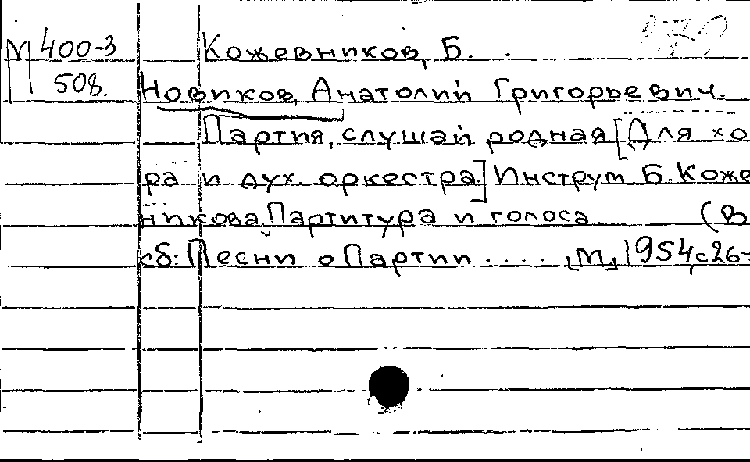 М 400-3 Кожевников, Б.
508. Новиков, Анатолий Григорьевич.
Партия, слушай родная [Для хо
ра и дух. оркестра.] Инструм Б. Коже
никова. Партитура и голоса (В
сб: Песни о Партии .... , М, 1954, с 26-